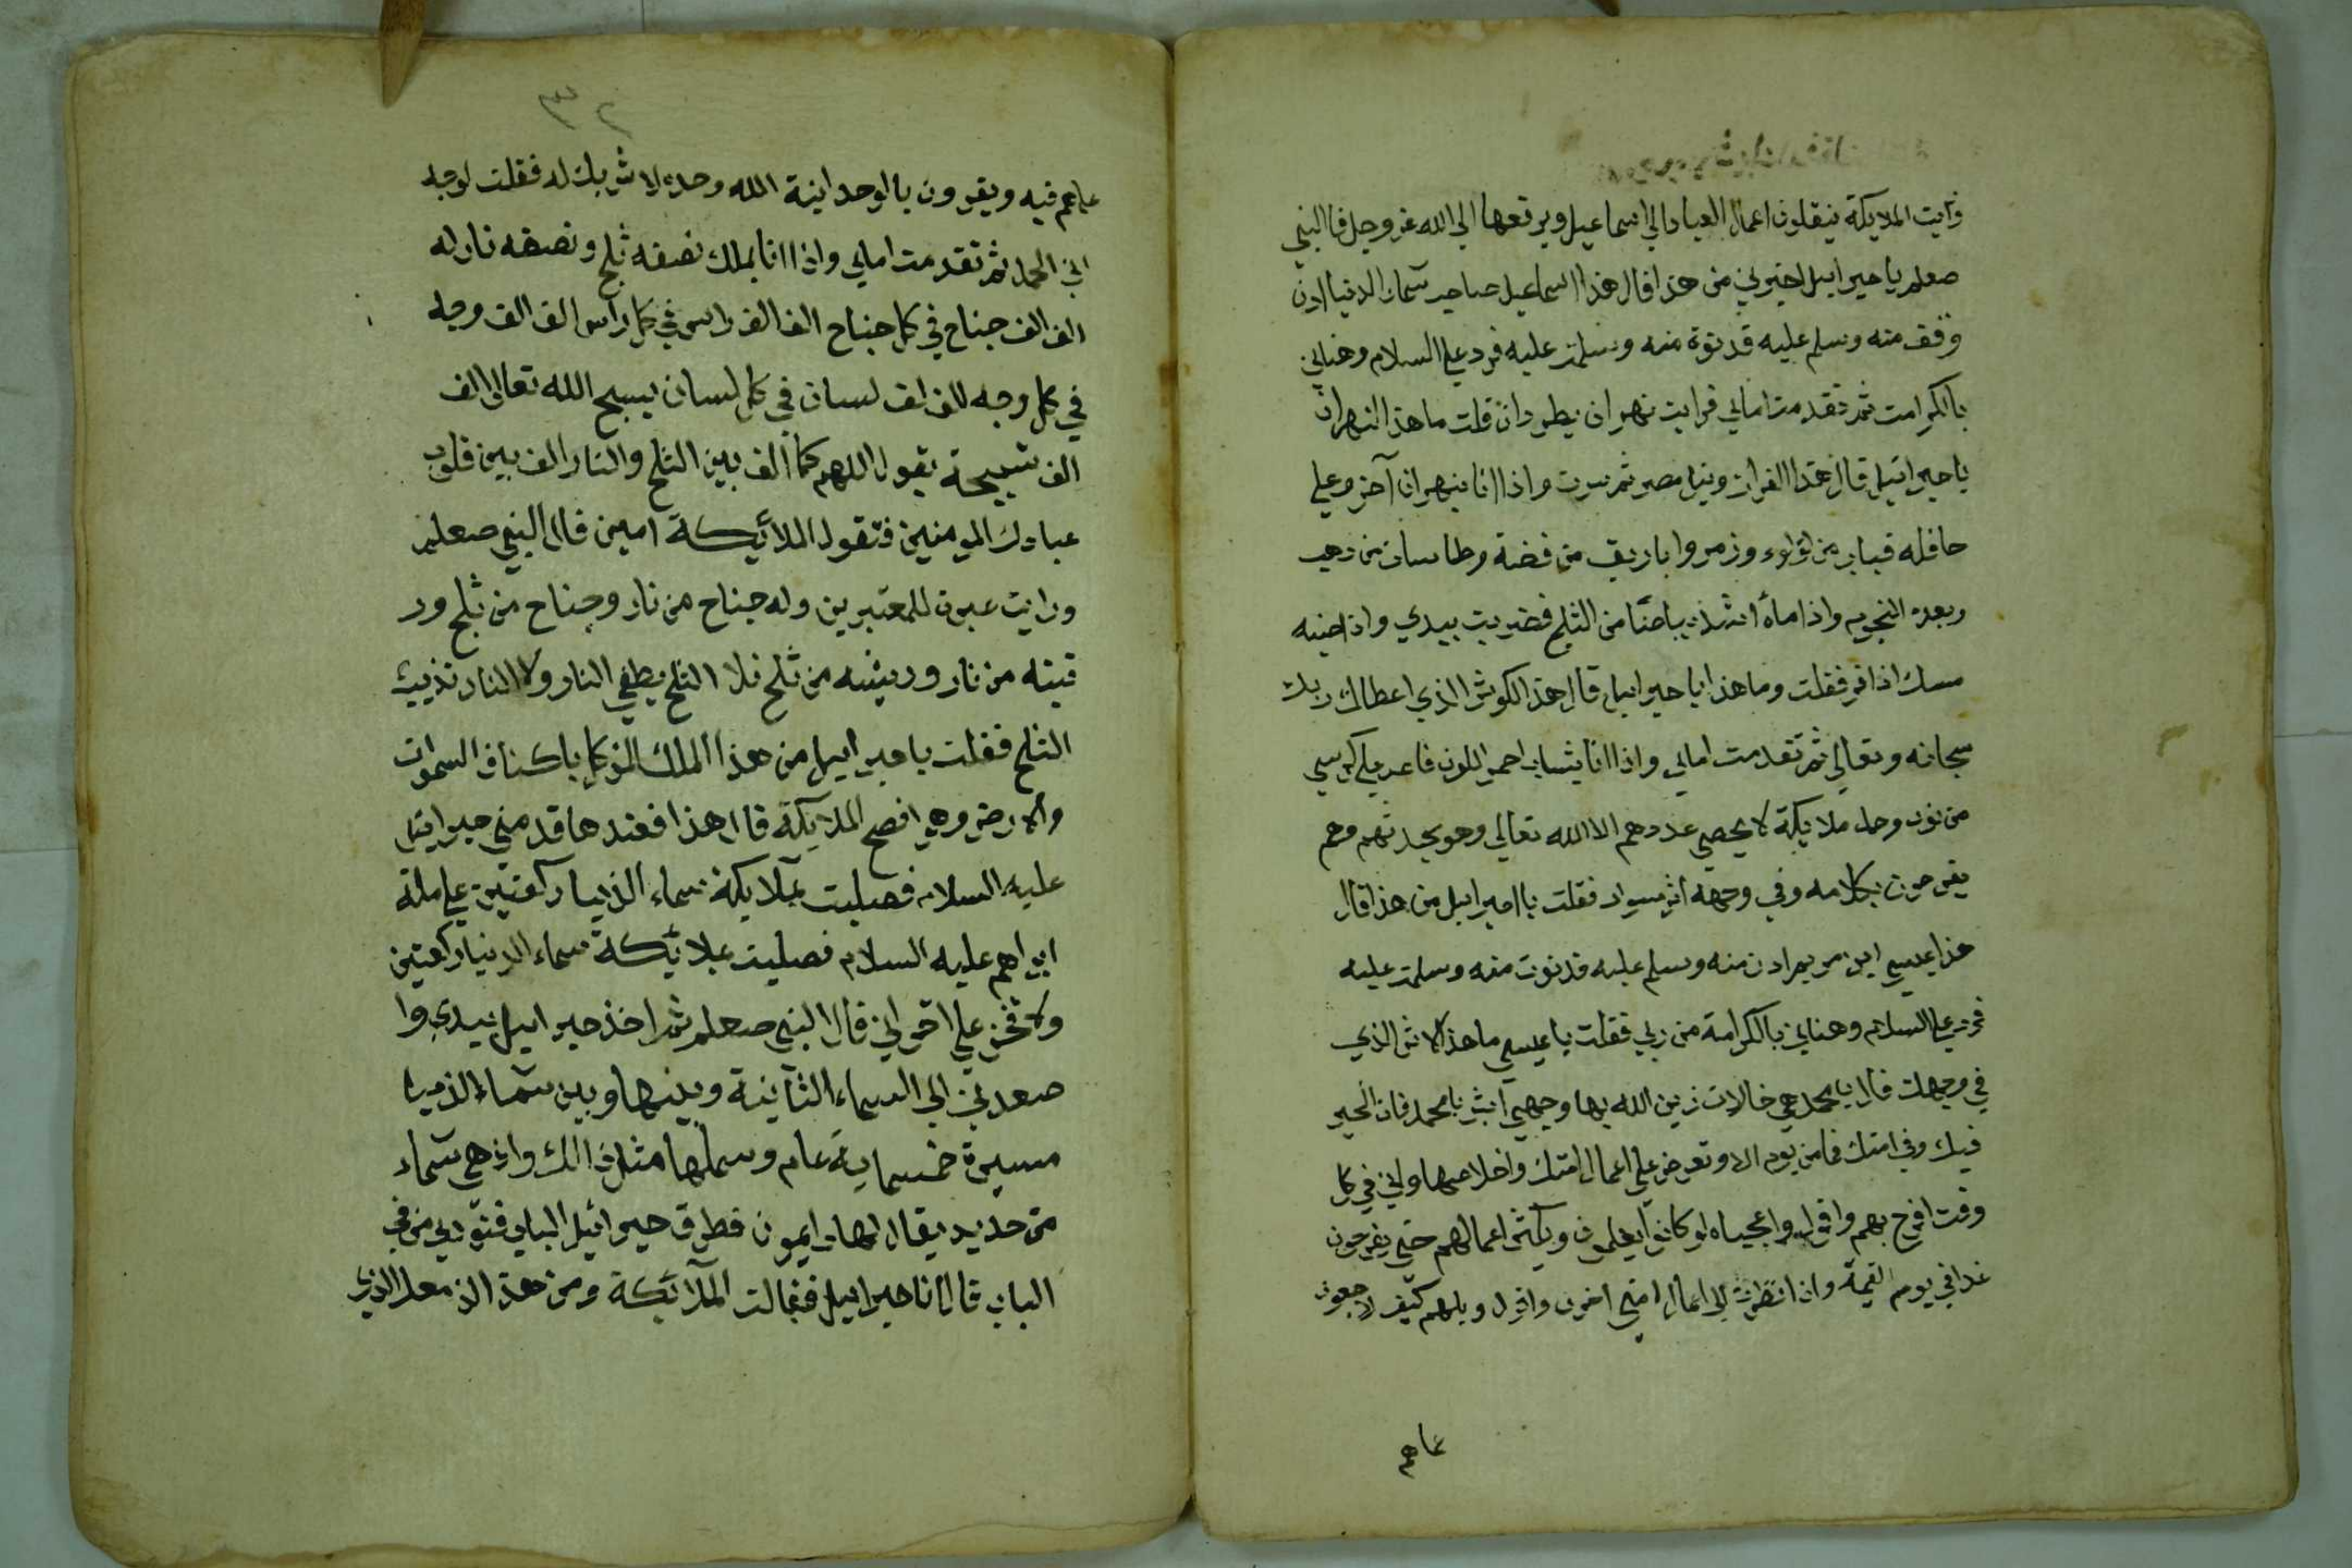 ورايت الملايكة ينقلون اعمال العباد الي اسماعيل ويرفعها الي الله عز وجل قال النبي
صعلم يا جبرايل اخبرني من هذا قال هذا اسماعيل صاحب سماء الدنيا ادن
وقف منه وسلم عليه فدنوة منه وسلمت عليه فرد علي السلام وهناني
بالكرامت ثم تقدمت امامي فرايت نهران يطردان قلت ما هذا النهران
يا جبرائيل قال هذا الفرات ونيل مصر ثم سرت واذا انا بنهران آخر وعلي
حافله قباب من لؤلوء وزمر وا باريق من فضة وطاسات من دهب
وبعدد النجوم واذا ماؤه اشد بياضا من الثلج فضربت بيدي واذا طينه
مسك اذافر فقلت وما هذا يا جبرايل قال هذا الكوثر الذي اعطاك ربك
سبحانه وتعالي ثم تقدمت امامي واذا انا بشاب احمر اللون قاعد علي كرسي
من نور وحوله ملايكة لا يحصي عددهم الا الله تعالي وهو يحدثهم وهم
يفرحون بكلامه وفي وجهه اثر سواد فقلت يا جبرايل من هذا قال
هذا عيسي ابن مريم ادن منه وسلم عليه فدنوت منه وسلمت عليه
فرد علي السلام وهناني بالكرامة من ربي فقلت يا عيسي ما هذا الاثر الذي
في وجهك قال يا محمد هي خالات زين الله بها وجهي ابشر يا محمد فان الخير
فيك وفي امتك فما من يوم الا وتعرض علي اعمال امتك واخلاصها واني في كل
وقت افرح بهم واقول واعجباه لو كانوا يعلمون ويكثر اعمالهم حتي يفرحون
غدا في يوم القيمة واذا نظرت الي اعمال امتي احزن واقول ويلهم كيف لا يرجعون
عماهم
٣٢
عماهم فيه ويقرون بالوحدانية الله وحده لا شريك له فقلت لوجه
ابي الحمد ثم تقدمت امامي واذا انا بملك نصفه ثلج ونصفه نار له
الف الف جناح في كل جناح الف الف راس في كل راس الف الف وجه
في كل وجه الف الف لسان في كل لسان يسبح الله تعالي الف
الف تسبيحة يقول اللهم كما الف بين الثلج والنار الف بين قلوب
عبادك المومنين فتقول الملائكة امين قال النبي صعلم
ورايت عبرة للمعتبرين وله جناح من نار وجناح من ثلج ور
قبته من نار وريشه من ثلج فلا الثلج يطفي النار ولا النار تذيب
الثلج فقلت يا جبرايل من هذا الملك الموكل باكناف السموات
والارض وهو افصح الملايكة قال هذا فعندها قدمني جبرايل
عليه السلام فصليت بملايكة سماء الدنيا ركعتين علي ملة
ابراهم عليه السلام فصليت بملائكة سماء الدنيا ركعتين
ولا فخر علي اخواني قال النبي صعلم ثم اخذ جبرايل بيدي وا
صعدني الي السماء الثانية وبينها وبين سماء الدنيا
مسيرة خمسماية عام وسمكها مثل ذالك واذ هي سماء
من حديد يقال لها ايمون فطرق جبرائيل الباب فنودي من في
الباب قال انا جبرايل فقالت الملائكة ومن هذا الذ معك الذي